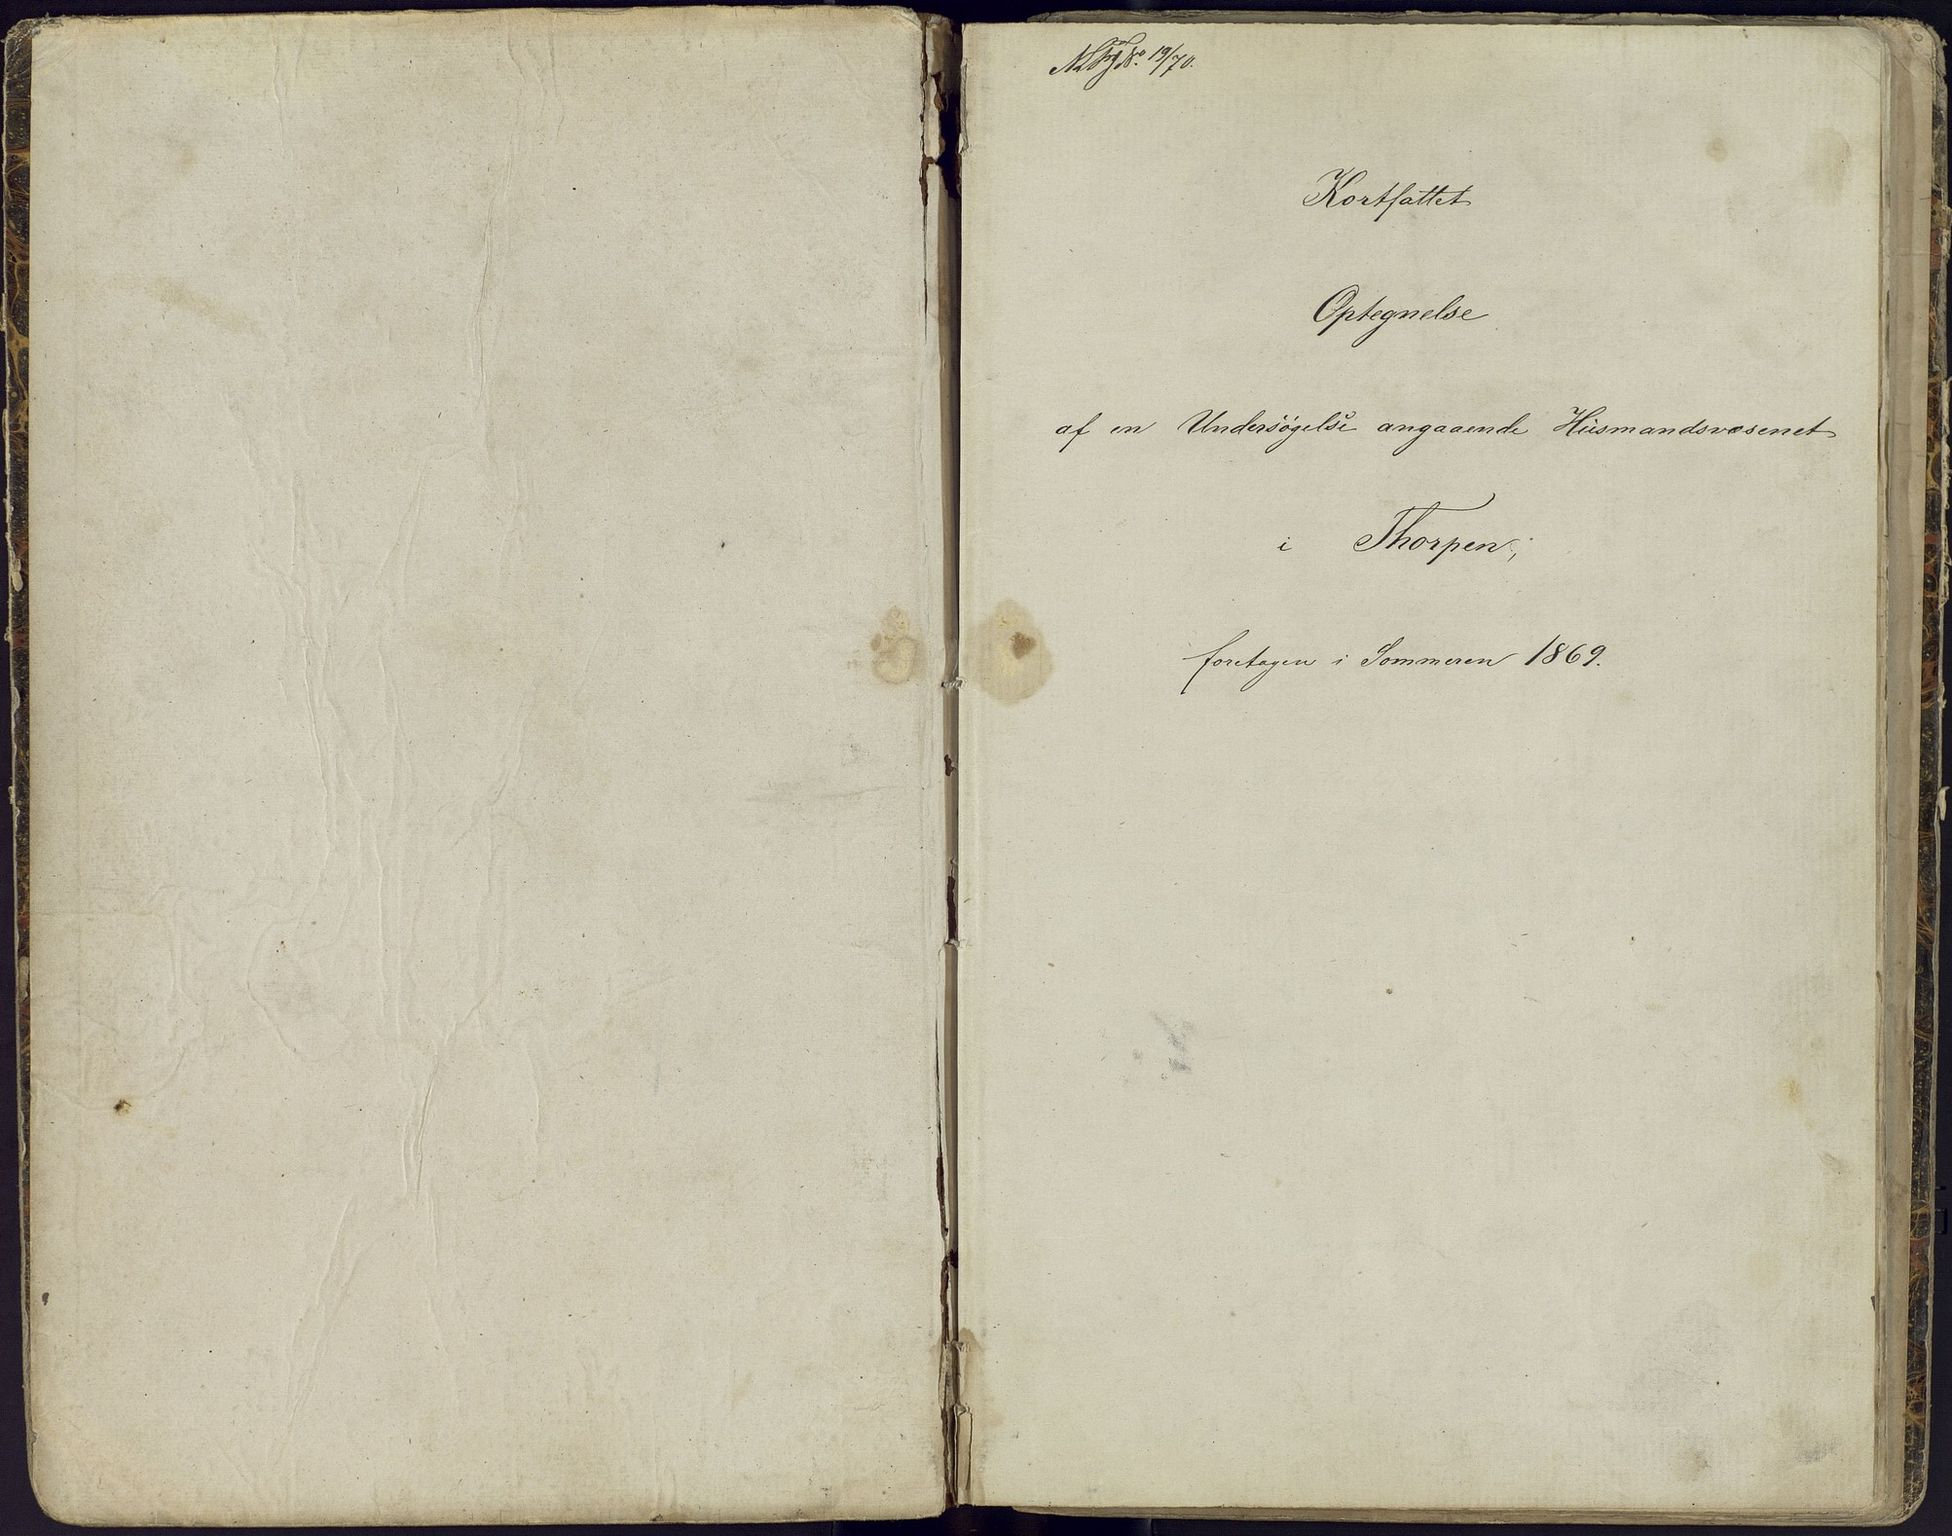 No. 19/70.
Kortfattet
Optegnelse
af en Undersøgelse angaaende Husmandsvæsenet
i Thorpen;
foretagen i Sommeren 1869.